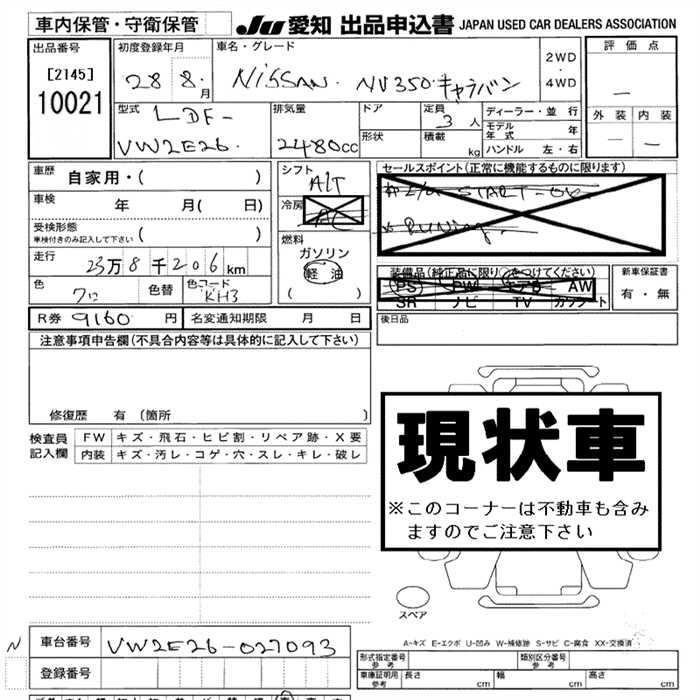 車内保管・守衛保管 JU 愛知 出品申込書 JAPAN USED CAR DEALERS ASSOCIATION
出品番号
[2145]
10021
初度登録年月
28 8 月
車名・グレード
NISSAN. NV350キャラバン
2WD
・
4WD
評価点
—
外装 内装
— —
型式 LDF-
VW2E26.
排気量
2480cc
ドア
形状
定員 3人
積載 kg
ディーラー・並行
モデル年式 年
ハンドル 左・右
車歴 自家用・( )
車検 年 月( 日)
受検形態
車検付きのみ記入して下さい ( )
走行 23万8千206km
色 クロ 色替 色コード KH3
シフト
A/T
冷房
AC
燃料
ガソリン
軽油
( )
セールスポイント(正常に機能するものに限ります)
装備品(純正品に限り○をつけてください)
PS PW エアB AW
SR ナビ TV カックート
新車保証書
有・無
R券 9160 円 名変通知期限 月 日
後日品
注意事項申告欄(不具合内容等は具体的に記入して下さい)
修復歴 有(箇所 )
検査員記入欄
FW キズ・飛石・ヒビ割・リペア跡・X要
内装 キズ・汚レ・コゲ・穴・スレ・キレ・破レ
現状車
※このコーナーは不動車も含み
ますのでご注意下さい
スペア
A-キズ E-エクボ U-凹み W-補修跡 S-サビ C-腐食 XX-交換済
N
車台番号 VW2E26-027093
登録番号
形式指定番号 参考
類別区分番号 参考
車庫証明用 参考 長さ cm 幅 cm 高さ cm